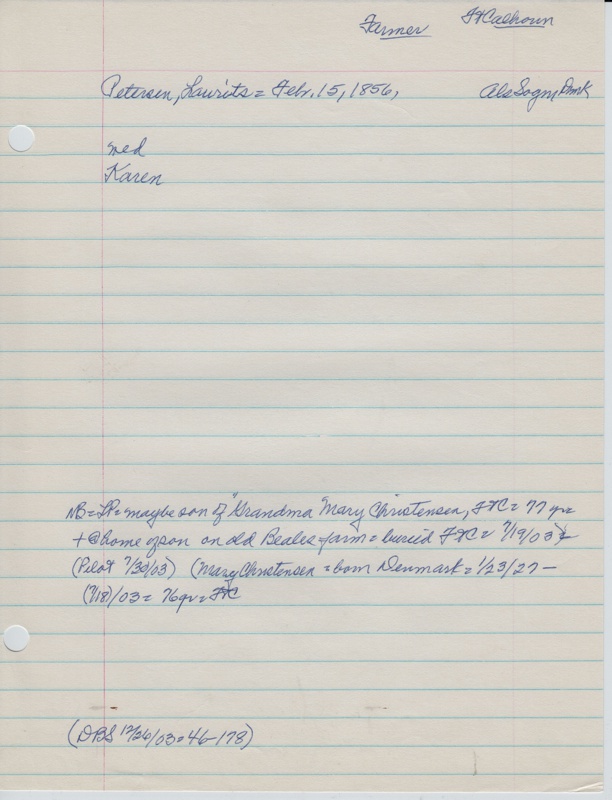 Farmer FtCalhoun
Petersen, Laurits = Febr. 15, 1856, Als Sogn, Dmk
wed
Karen
NB = LP = maybe son of "Grandma" Mary Christensen, FtC = 77 yr =
+ @ home of son on old Beales farm = buried FtC = 7/19/03
(Pilot 7/30/03) (Mary Christensen = born Denmark = 1/23/27 –
(7/18)/03 = 76 yr = FtC
(DBS 12/26/03 = 46-178)